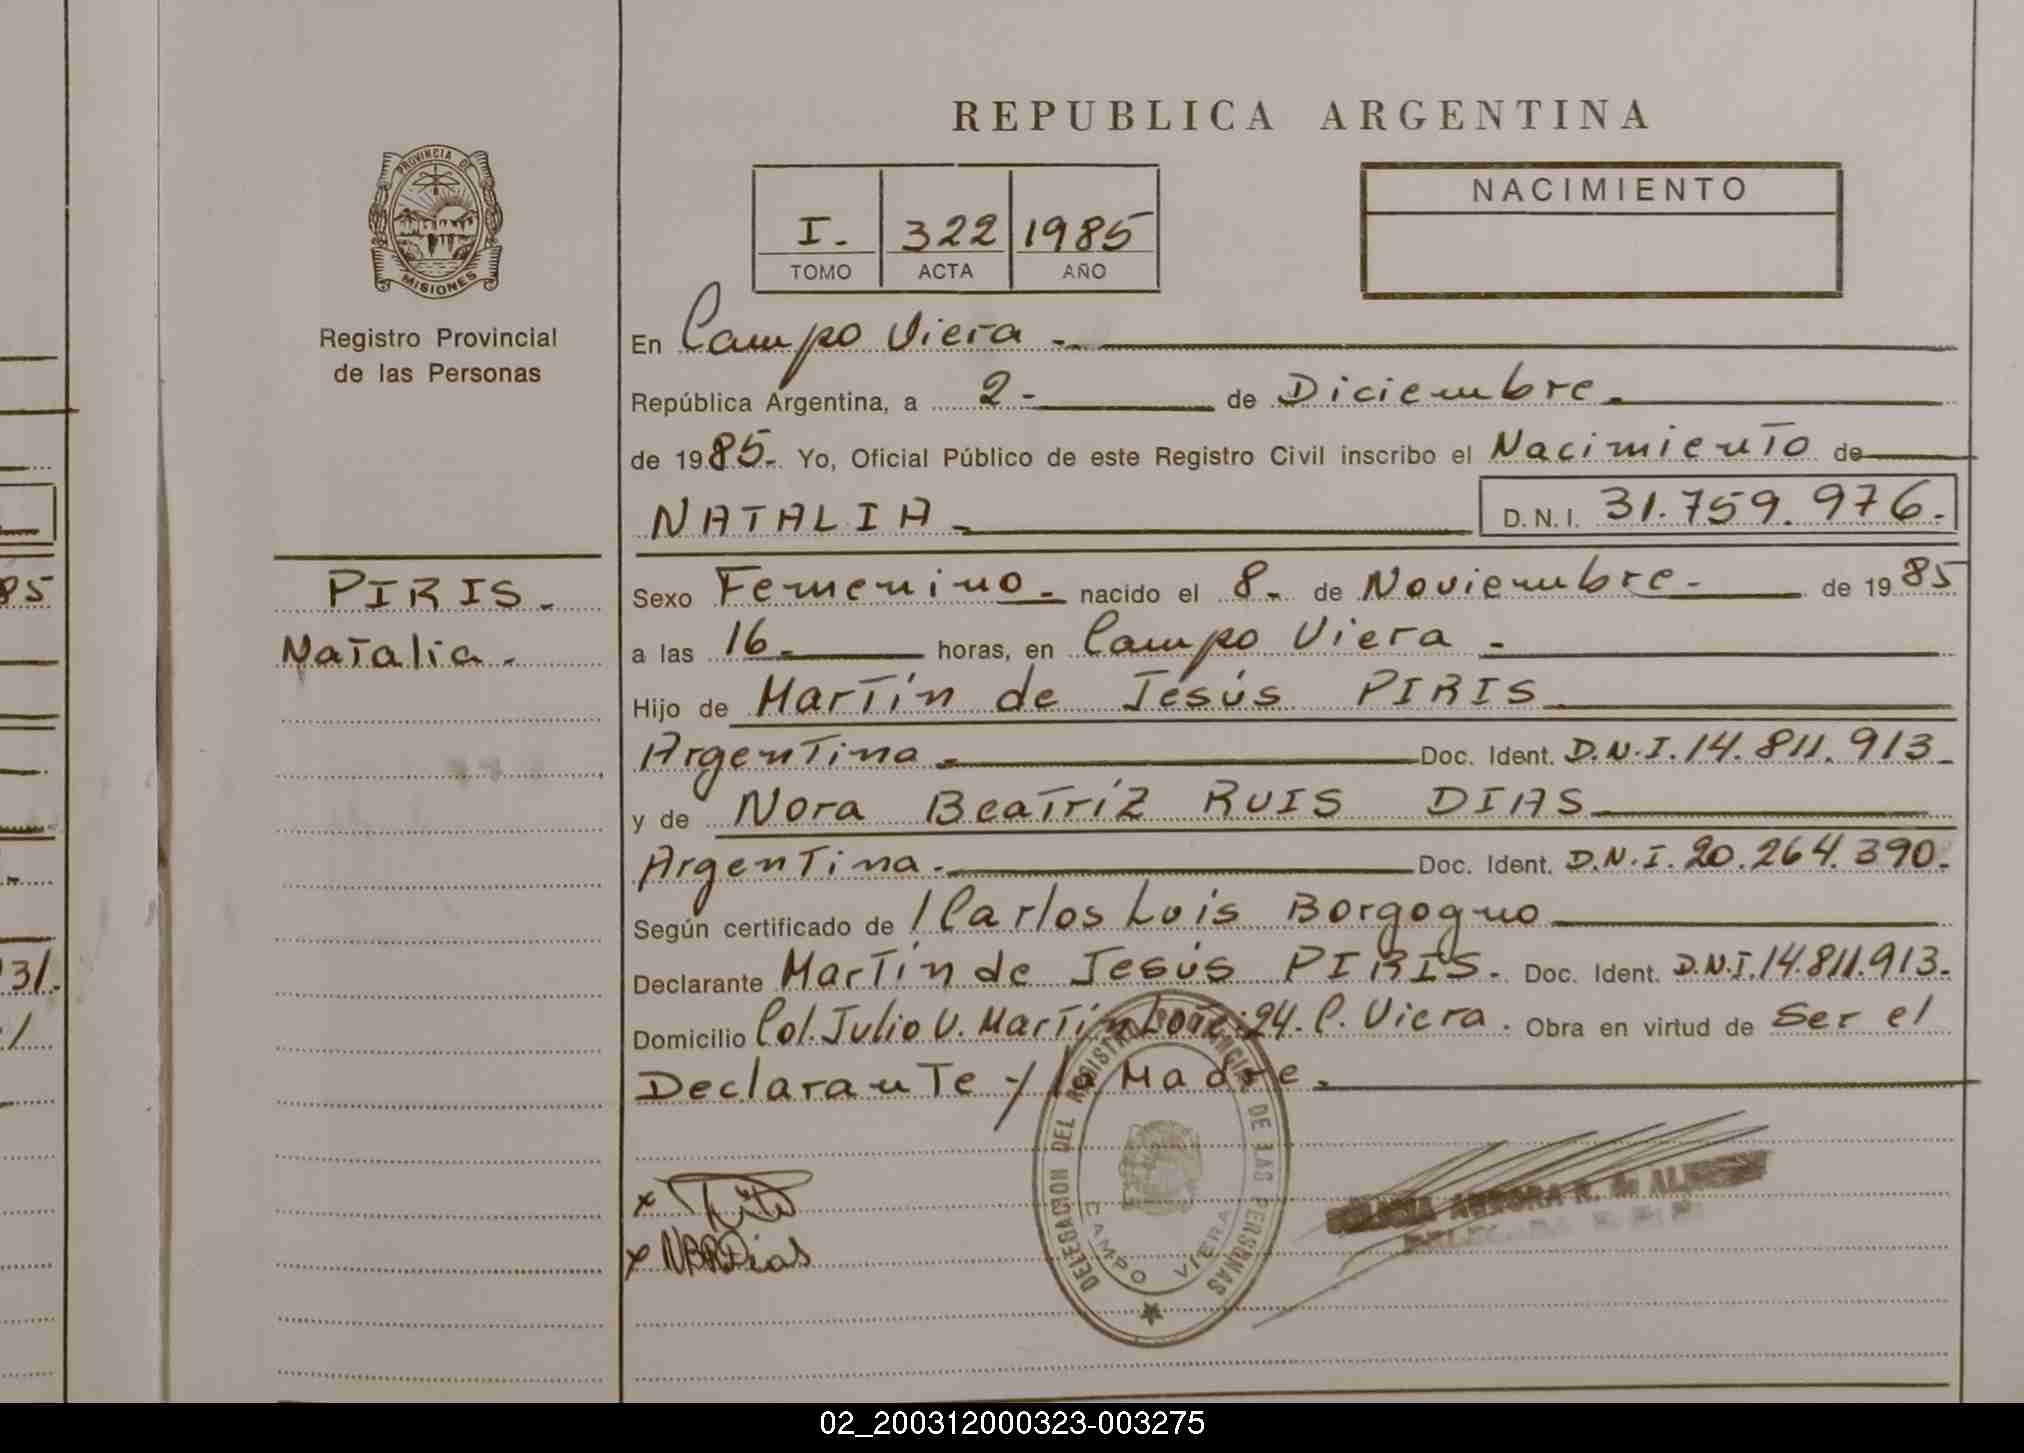 REPUBLICA ARGENTINA
PROVINCIA DE
MISIONES
Registro Provincial
de las Personas
I.
322
1985
TOMO
ACTA
AÑO
NACIMIENTO
En Campo Viera.-
República Argentina, a 2- de Diciembre.
de 1985.- Yo, Oficial Público de este Registro Civil inscribo el Nacimiento de
NATALIA.- D.N.I. 31.759.976.-
PIRIS.-
Natalia.-
85
Sexo Femenino.- nacido el 8.- de Noviembre.- de 1985
a las 16.- horas, en Campo Viera.-
Hijo de Martín de Jesús PIRIS
Argentina.- Doc. Ident. D.N.I. 14.811.913.-
y de Nora Beatríz RUIS DIAS
Argentina.- Doc. Ident. D.N.I. 20.264.390.-
Según certificado de / Carlos Luis Borgogno
31.
Declarante Martín de Jesús PIRIS.- Doc. Ident. D.N.I. 14.811.913.-
Domicilio Col. Julio U. Martín Lote: 24. C. Viera. Obra en virtud de Ser el
Declarante y la Madre.
DELEGACION DEL REGISTRO PROVINCIAL DE LAS PERSONAS
CAMPO VIERA
x
x NBRDias
AURORA R. de
02_200312000323-003275